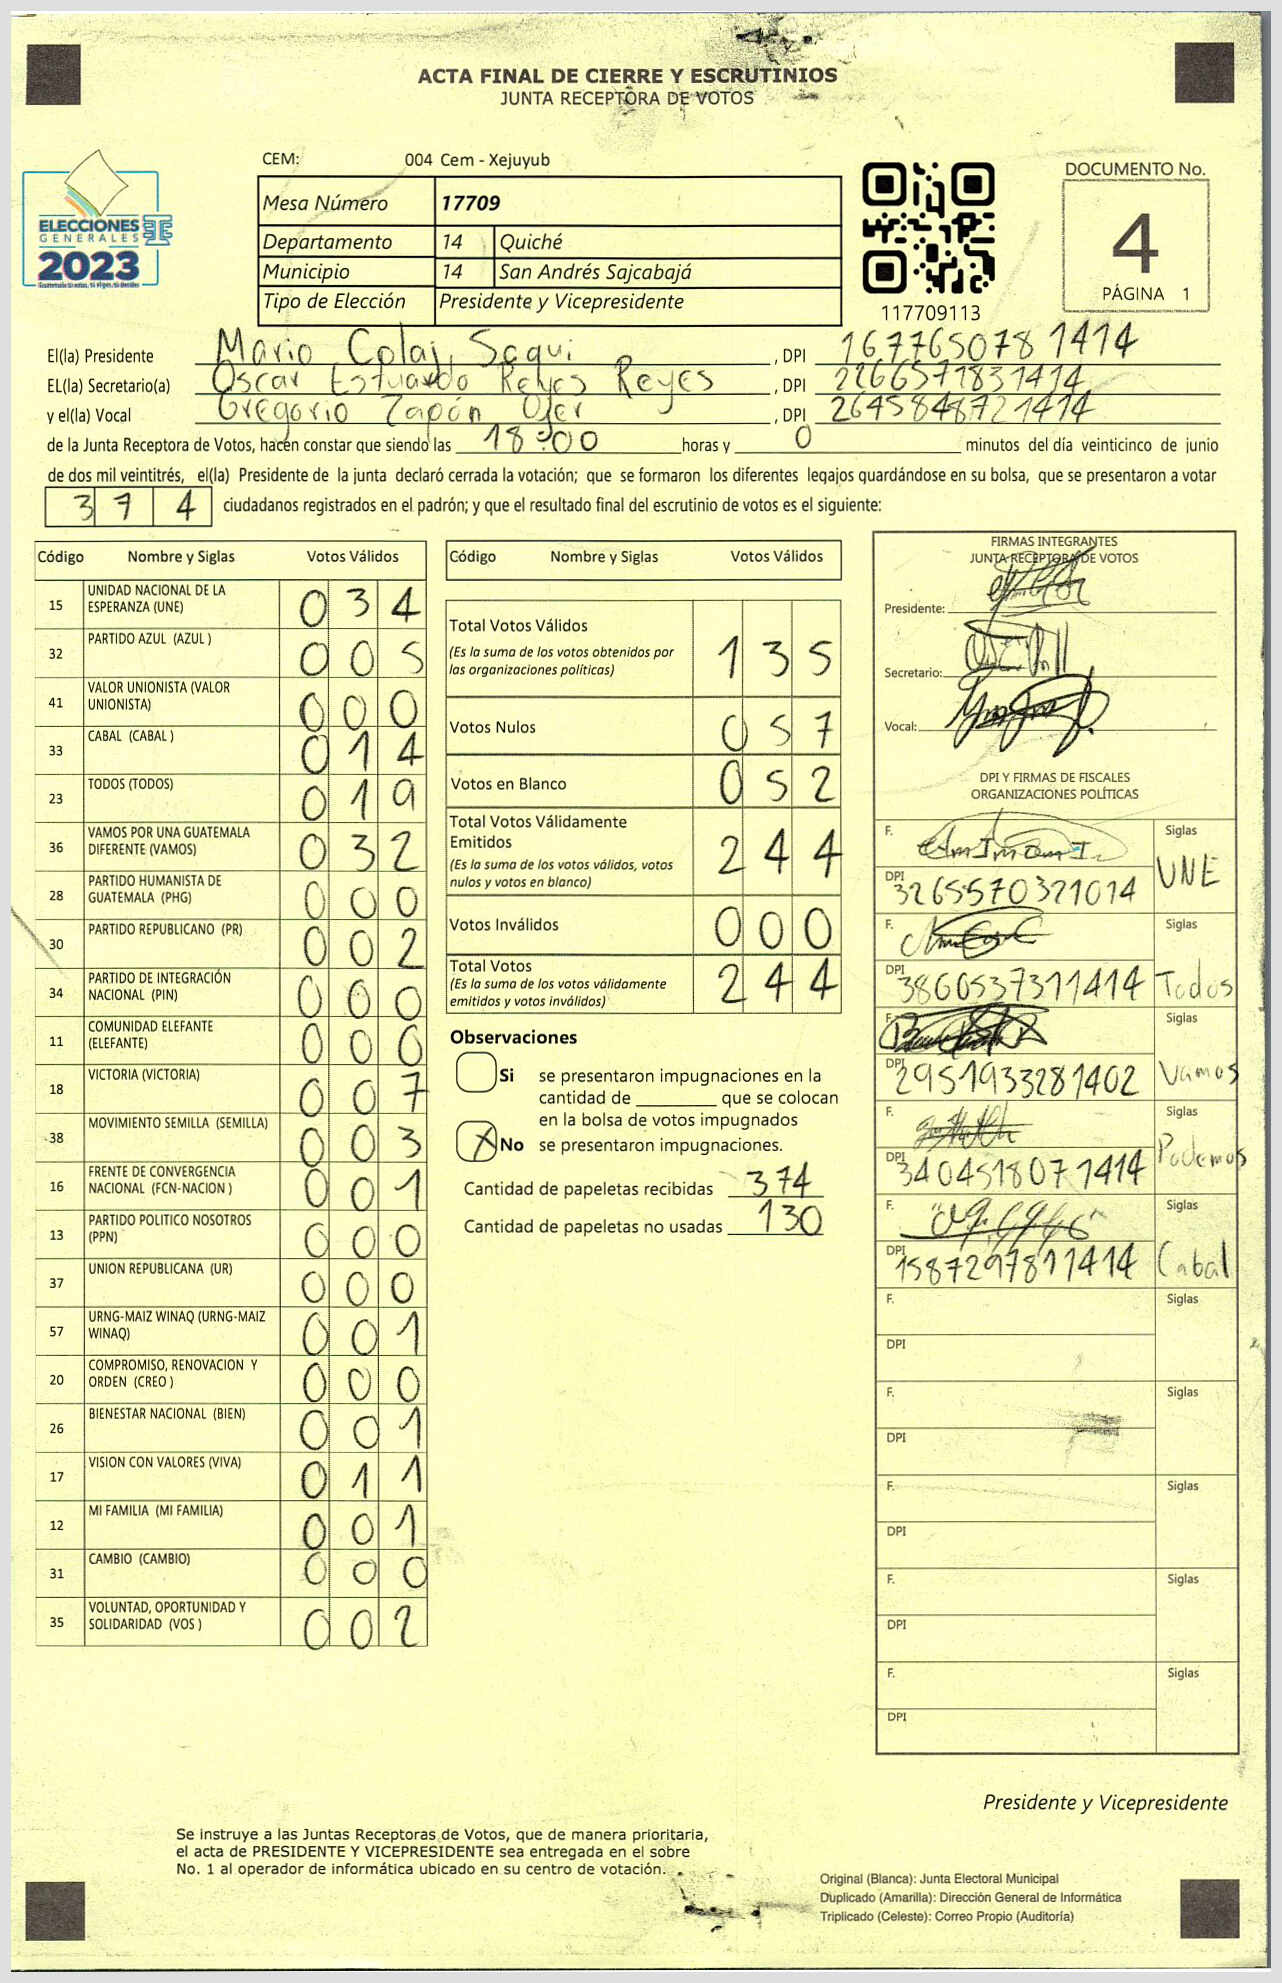 ACTA FINAL DE CIERRE Y ESCRUTINIOS
JUNTA RECEPTORA DE VOTOS
CEM: 004 Cem - Xejuyub
DOCUMENTO No.
4
PÁGINA 1
ELECCIONES
GENERALES
2023
Mesa Número 17709
Departamento 14 Quiché
Municipio 14 San Andrés Sajcabajá
Tipo de Elección Presidente y Vicepresidente
117709113
El(la) Presidente Mario Colaj Saqui , DPI 1677650781414
EL(la) Secretario(a) Oscar Estuardo Reyes Reyes , DPI 2266571831414
y el(la) Vocal Gregorio Zapón , DPI 2645848721414
de la Junta Receptora de Votos, hacen constar que siendo las 18:00 horas y 0 minutos del día veinticinco de junio
de dos mil veintitrés, el(la) Presidente de la junta declaró cerrada la votación; que se formaron los diferentes legajos guardándose en su bolsa, que se presentaron a votar
374 ciudadanos registrados en el padrón; y que el resultado final del escrutinio de votos es el siguiente:
Código Nombre y Siglas Votos Válidos
15 UNIDAD NACIONAL DE LA ESPERANZA (UNE) 034
32 PARTIDO AZUL (AZUL ) 005
41 VALOR UNIONISTA (VALOR UNIONISTA) 000
33 CABAL (CABAL ) 014
23 TODOS (TODOS) 019
36 VAMOS POR UNA GUATEMALA DIFERENTE (VAMOS) 032
28 PARTIDO HUMANISTA DE GUATEMALA (PHG) 000
30 PARTIDO REPUBLICANO (PR) 002
34 PARTIDO DE INTEGRACIÓN NACIONAL (PIN) 000
11 COMUNIDAD ELEFANTE (ELEFANTE) 000
18 VICTORIA (VICTORIA) 007
38 MOVIMIENTO SEMILLA (SEMILLA) 003
16 FRENTE DE CONVERGENCIA NACIONAL (FCN-NACION ) 001
13 PARTIDO POLITICO NOSOTROS (PPN) 000
37 UNION REPUBLICANA (UR) 000
57 URNG-MAIZ WINAQ (URNG-MAIZ WINAQ) 001
20 COMPROMISO, RENOVACION Y ORDEN (CREO ) 000
26 BIENESTAR NACIONAL (BIEN) 001
17 VISION CON VALORES (VIVA) 011
12 MI FAMILIA (MI FAMILIA) 001
31 CAMBIO (CAMBIO) 000
35 VOLUNTAD, OPORTUNIDAD Y SOLIDARIDAD (VOS ) 002
Código Nombre y Siglas Votos Válidos
Total Votos Válidos 135
(Es la suma de los votos obtenidos por
las organizaciones políticas)
Votos Nulos 057
Votos en Blanco 052
Total Votos Válidamente
Emitidos 244
(Es la suma de los votos válidos, votos
nulos y votos en blanco)
Votos Inválidos 000
Total Votos 244
(Es la suma de los votos válidamente
emitidos y votos inválidos)
Observaciones
Si se presentaron impugnaciones en la
cantidad de ________ que se colocan
en la bolsa de votos impugnados
X No se presentaron impugnaciones.
Cantidad de papeletas recibidas 374
Cantidad de papeletas no usadas 130
FIRMAS INTEGRANTES
JUNTA RECEPTORA DE VOTOS
Presidente:
Secretario:
Vocal:
DPI Y FIRMAS DE FISCALES
ORGANIZACIONES POLÍTICAS
F. Siglas
DPI 3265570321014 UNE
F. Siglas
DPI 3860537311414 Todos
F. Siglas
DPI 2951933281402 Vamos
F. Siglas
DPI 3404518071414 Podemos
F. Siglas
DPI 1587297811414 Cabal
F. Siglas
DPI
F. Siglas
DPI
F. Siglas
DPI
F. Siglas
DPI
F. Siglas
DPI
Presidente y Vicepresidente
Se instruye a las Juntas Receptoras de Votos, que de manera prioritaria,
el acta de PRESIDENTE Y VICEPRESIDENTE sea entregada en el sobre
No. 1 al operador de informática ubicado en su centro de votación.
Original (Blanca): Junta Electoral Municipal
Duplicado (Amarilla): Dirección General de Informática
Triplicado (Celeste): Correo Propio (Auditoría)